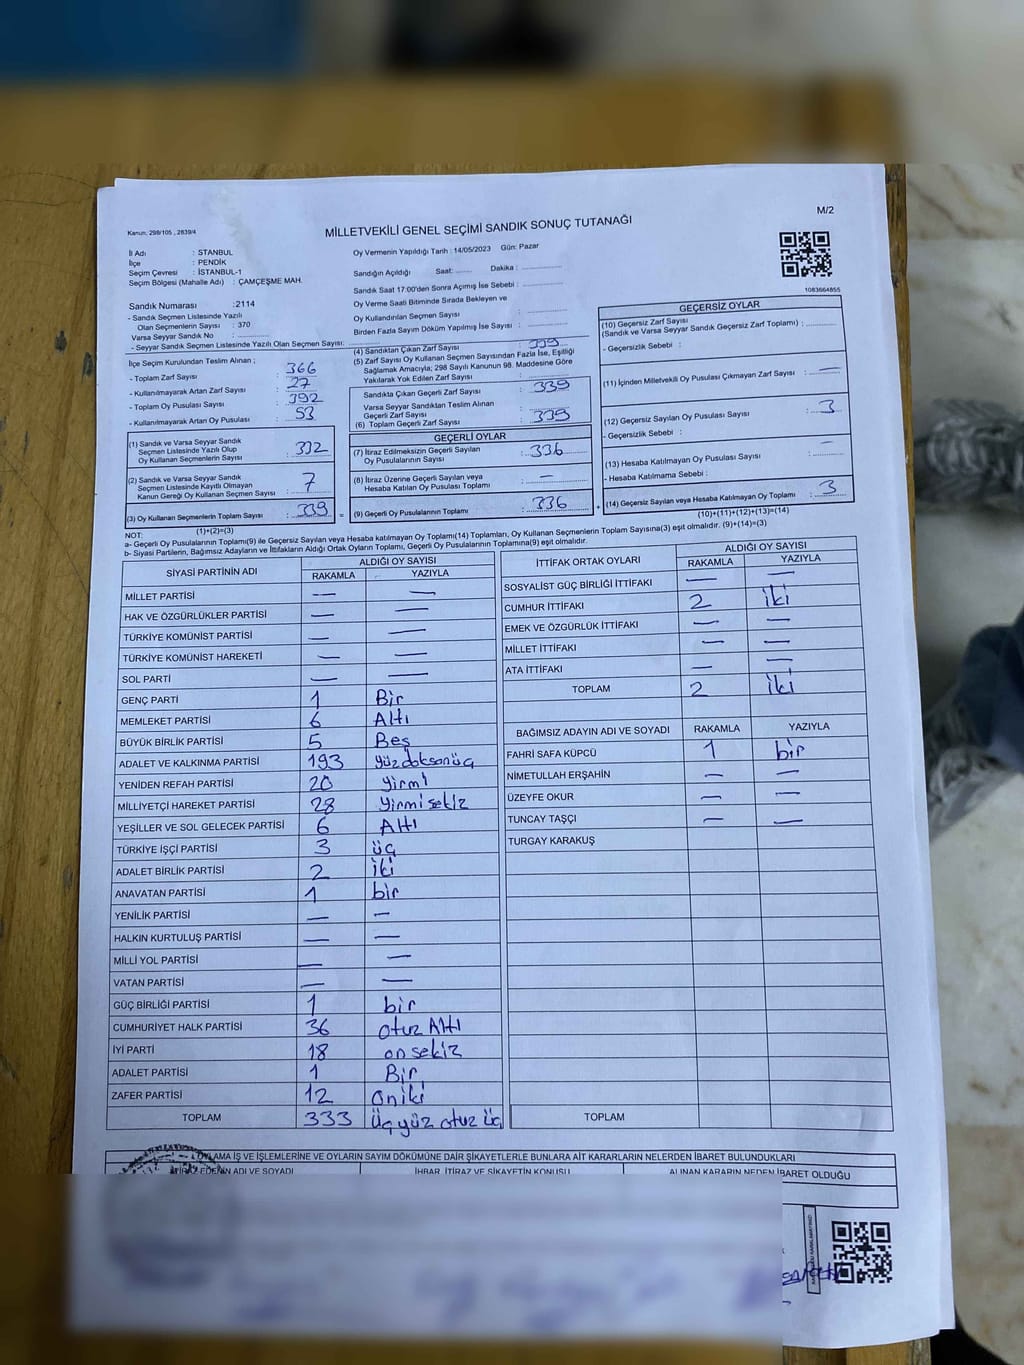 M/2
Kanun; 298/105 , 2839/4
MİLLETVEKİLİ GENEL SEÇİMİ SANDIK SONUÇ TUTANAĞI
İl Adı : İSTANBUL
İlçe : PENDİK
Seçim Çevresi : İSTANBUL-1
Seçim Bölgesi (Mahalle Adı) : ÇAMÇEŞME MAH.
Sandık Numarası :2114
- Sandık Seçmen Listesinde Yazılı
Olan Seçmenlerin Sayısı : 370
Varsa Seyyar Sandık No :
- Seyyar Sandık Seçmen Listesinde Yazılı Olan Seçmen Sayısı:
Oy Vermenin Yapıldığı Tarih : 14/05/2023 Gün: Pazar
Sandığın Açıldığı Saat: Dakika :
Sandık Saat 17:00'den Sonra Açımış İse Sebebi :
Oy Verme Saati Bitiminde Sırada Bekleyen ve
Oy Kullandırılan Seçmen Sayısı :
Birden Fazla Sayım Döküm Yapılmış İse Sayısı :
1083664855
İlçe Seçim Kurulundan Teslim Alınan ;
- Toplam Zarf Sayısı : 366
- Kullanılmayarak Artan Zarf Sayısı : 27
- Toplam Oy Pusulası Sayısı : 392
- Kullanılmayarak Artan Oy Pusulası : 53
(1) Sandık ve Varsa Seyyar Sandık
Seçmen Listesinde Yazılı Olup
Oy Kullanan Seçmenlerin Sayısı : 332
(2) Sandık ve Varsa Seyyar Sandık
Seçmen Listesinde Kayıtlı Olmayan
Kanun Gereği Oy Kullanan Seçmen Sayısı : 7
(3) Oy Kullanan Seçmenlerin Toplam Sayısı : 339 =
(1)+(2)=(3)
(4) Sandıktan Çıkan Zarf Sayısı : 339
(5) Zarf Sayısı Oy Kullanan Seçmen Sayısından Fazla İse, Eşitliği
Sağlamak Amacıyla; 298 Sayılı Kanunun 98. Maddesine Göre
Yakılarak Yok Edilen Zarf Sayısı :
Sandıkta Çıkan Geçerli Zarf Sayısı : 339
Varsa Seyyar Sandıktan Teslim Alınan
Geçerli Zarf Sayısı :
(6) Toplam Geçerli Zarf Sayısı : 339
GEÇERLİ OYLAR
(7) İtiraz Edilmeksizin Geçerli Sayılan
Oy Pusulalarının Sayısı : 336
(8) İtiraz Üzerine Geçerli Sayılan veya
Hesaba Katılan Oy Pusulası Toplamı : —
(9) Geçerli Oy Pusulalarının Toplamı : 336 +
GEÇERSİZ OYLAR
(10) Geçersiz Zarf Sayısı
(Sandık ve Varsa Seyyar Sandık Geçersiz Zarf Toplamı) :
- Geçersizlik Sebebi :
(11) İçinden Milletvekili Oy Pusulası Çıkmayan Zarf Sayısı : —
(12) Geçersiz Sayılan Oy Pusulası Sayısı : 3
- Geçersizlik Sebebi :
(13) Hesaba Katılmayan Oy Pusulası Sayısı : —
- Hesaba Katılmama Sebebi :
(14) Geçersiz Sayılan veya Hesaba Katılmayan Oy Toplamı : 3
(10)+(11)+(12)+(13)=(14)
NOT:
a- Geçerli Oy Pusulalarının Toplamı(9) ile Geçersiz Sayılan veya Hesaba katılmayan Oy Toplamı(14) Toplamları, Oy Kullanan Seçmenlerin Toplam Sayısına(3) eşit olmalıdır. (9)+(14)=(3)
b- Siyasi Partilerin, Bağımsız Adayların ve İttifakların Aldığı Ortak Oyların Toplamı, Geçerli Oy Pusulalarının Toplamına(9) eşit olmalıdır.
SİYASİ PARTİNİN ADI ALDIĞI OY SAYISI
RAKAMLA YAZIYLA
MİLLET PARTİSİ — —
HAK VE ÖZGÜRLÜKLER PARTİSİ — —
TÜRKİYE KOMÜNİST PARTİSİ — —
TÜRKİYE KOMÜNİST HAREKETİ — —
SOL PARTİ — —
GENÇ PARTİ 1 Bir
MEMLEKET PARTİSİ 6 Altı
BÜYÜK BİRLİK PARTİSİ 5 Beş
ADALET VE KALKINMA PARTİSİ 193 yüzdoksanüç
YENİDEN REFAH PARTİSİ 20 yirmi
MİLLİYETÇİ HAREKET PARTİSİ 28 yirmisekiz
YEŞİLLER VE SOL GELECEK PARTİSİ 6 Altı
TÜRKİYE İŞÇİ PARTİSİ 3 üç
ADALET BİRLİK PARTİSİ 2 iki
ANAVATAN PARTİSİ 1 bir
YENİLİK PARTİSİ — —
HALKIN KURTULUŞ PARTİSİ — —
MİLLİ YOL PARTİSİ — —
VATAN PARTİSİ — —
GÜÇ BİRLİĞİ PARTİSİ 1 bir
CUMHURİYET HALK PARTİSİ 36 otuz Altı
İYİ PARTİ 18 onsekiz
ADALET PARTİSİ 1 Bir
ZAFER PARTİSİ 12 oniki
TOPLAM 333 üçyüz otuz üç
İTTİFAK ORTAK OYLARI ALDIĞI OY SAYISI
RAKAMLA YAZIYLA
SOSYALİST GÜÇ BİRLİĞİ İTTİFAKI — —
CUMHUR İTTİFAKI 2 iki
EMEK VE ÖZGÜRLÜK İTTİFAKI — —
MİLLET İTTİFAKI — —
ATA İTTİFAKI — —
TOPLAM 2 iki
BAĞIMSIZ ADAYIN ADI VE SOYADI RAKAMLA YAZIYLA
FAHRİ SAFA KÜPCÜ 1 bir
NİMETULLAH ERŞAHİN — —
ÜZEYFE OKUR — —
TUNCAY TAŞÇI — —
TURGAY KARAKUŞ
TOPLAM
OYLAMA İŞ VE İŞLEMLERİNE VE OYLARIN SAYIM DÖKÜMÜNE DAİR ŞİKAYETLERLE BUNLARA AİT KARARLARIN NELERDEN İBARET BULUNDUKLARI
İTİRAZ EDENİN ADI VE SOYADI İHBAR, İTİRAZ VE ŞİKAYETİN KONUSU ALINAN KARARIN NEDEN İBARET OLDUĞU